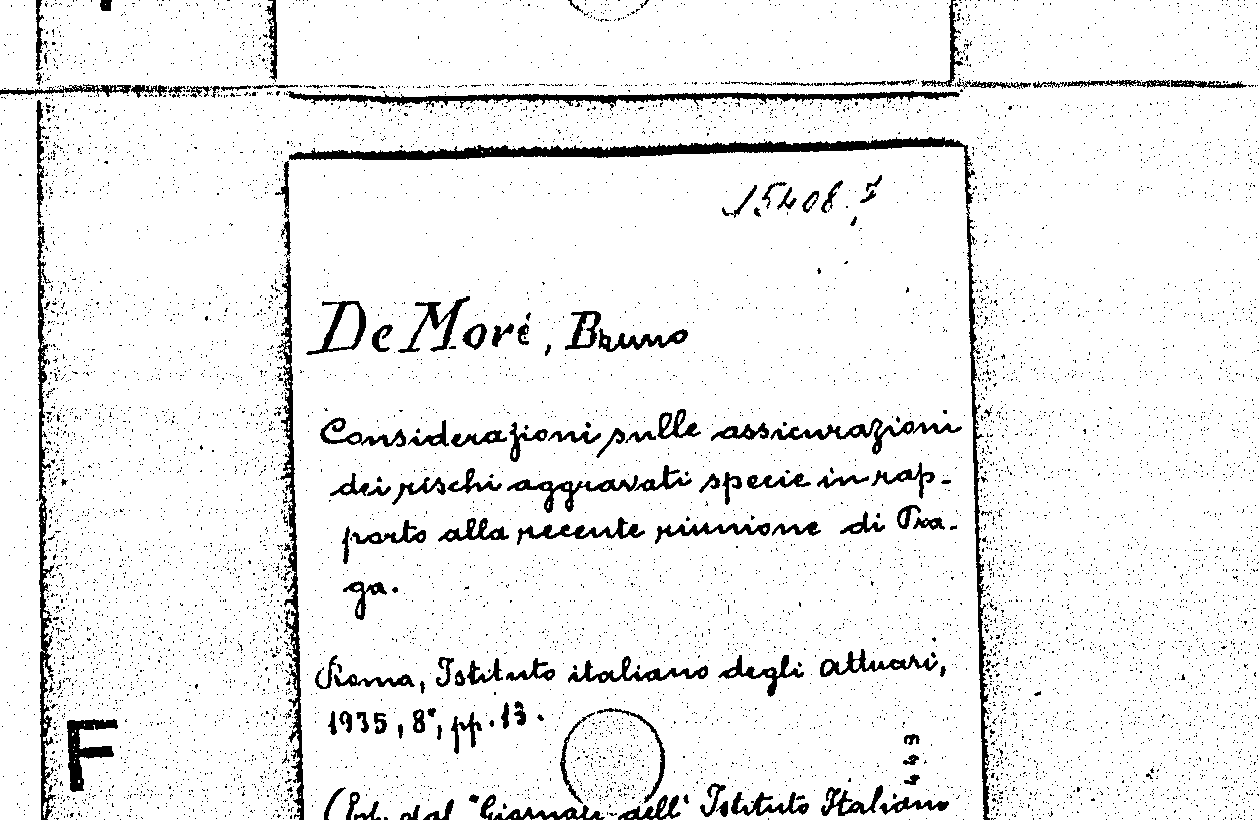 15408.
De Mori, Bruno
Considerazioni sulle assicurazioni
dei rischi aggravati specie in rap-
porto alla recente riunione di Pra-
ga.
Roma, Istituto italiano degli attuari,
1935, 8°, pp. 13.
F
443
dal "Giornale dell' Istituto Italiano